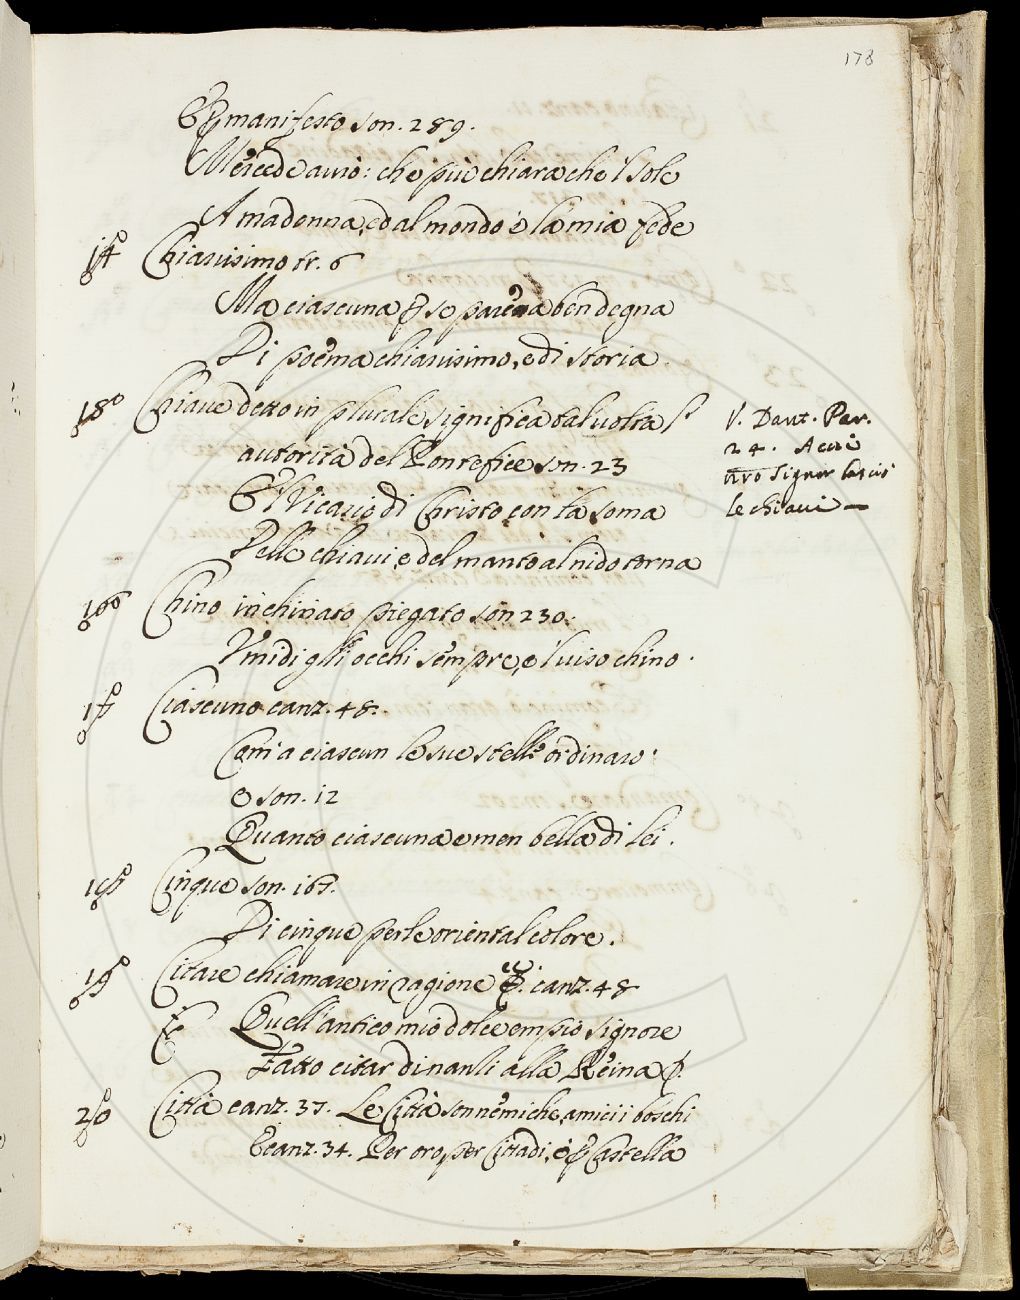 178
E p manifesto son. 289.
Mercede avrò: che più chiara che 'l sole
A madonna, ed al mondo è la mia fede
Chiarissimo tr. 6
Ma ciascuna p se parerà ben degna
Di poema chiarissimo, e di storia
18º Chiave detto in plurale significa tal volta l'
autorità del Pontefice son. 23
E 'l Vicario di Christo con la soma
Delle chiavi, e del manto al nido torna
V. Dant. Par.
24. A cui
nro Signor lasciò
le chiavi —
Chino inchinato piegato son 230.
Umidi gli occhi sempre, e 'l viso chino.
Ciascuno canz. 48.
Ch'a ciascun le sue stelle ordinaro
e son. 12
Quanto ciascuna e men bella di lei.
Cinque son. 167.
Di cinque perle oriental colore.
19º Citare chiamare in ragione canz. 48
Quell'antico mio dolce empio signore
Fatto citar dinanzi alla Reina
20 Città canz. 37. Le Città son nemiche, amici i boschi
E canz. 34. Per oro, o per Cittadi, o p Castella